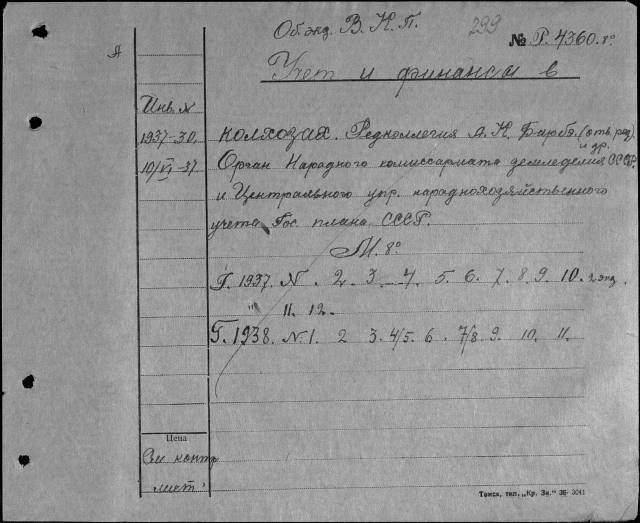 Об. экз. В. К. П. 299 № Р. 4360. 8°
А
Учет и финансы в
Инв. №
1937-30. колхозах. Редколлегия А. К. Барбэ. (отв. ред) и др.
10/VI-37 Орган Народного комиссариата земледелия СССР.
и Центрального упр. народнохозяйственного
учета Гос плана СССР.
М. 8°
Г. 1937. N. 2 3 4. 5. 6. 7. 8. 9. 10. 2 экз.
" 11. 12.
Г. 1938. N. 1. 2 3. 4/5. 6. 7/8 9. 10. 11.
Цена
См контр
лист.
Томск, тип. „Кр. Зн." 36- 3041